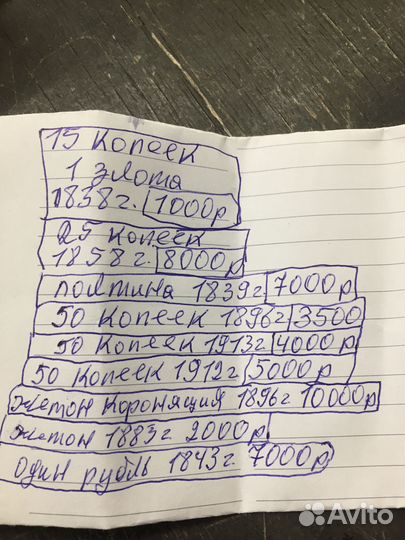 15 копеек
1 злота
1838г. 1000р
25 копеек
1858г. 8000р
полтина 1839г 7000р
50 копеек 1896г 3500
50 копеек 1913г 4000р
50 копеек 1912г 5000р
жетон коронация 1896г 10000р
жетон 1883г 2000р
один рубль 1843г. 7000р
Avito